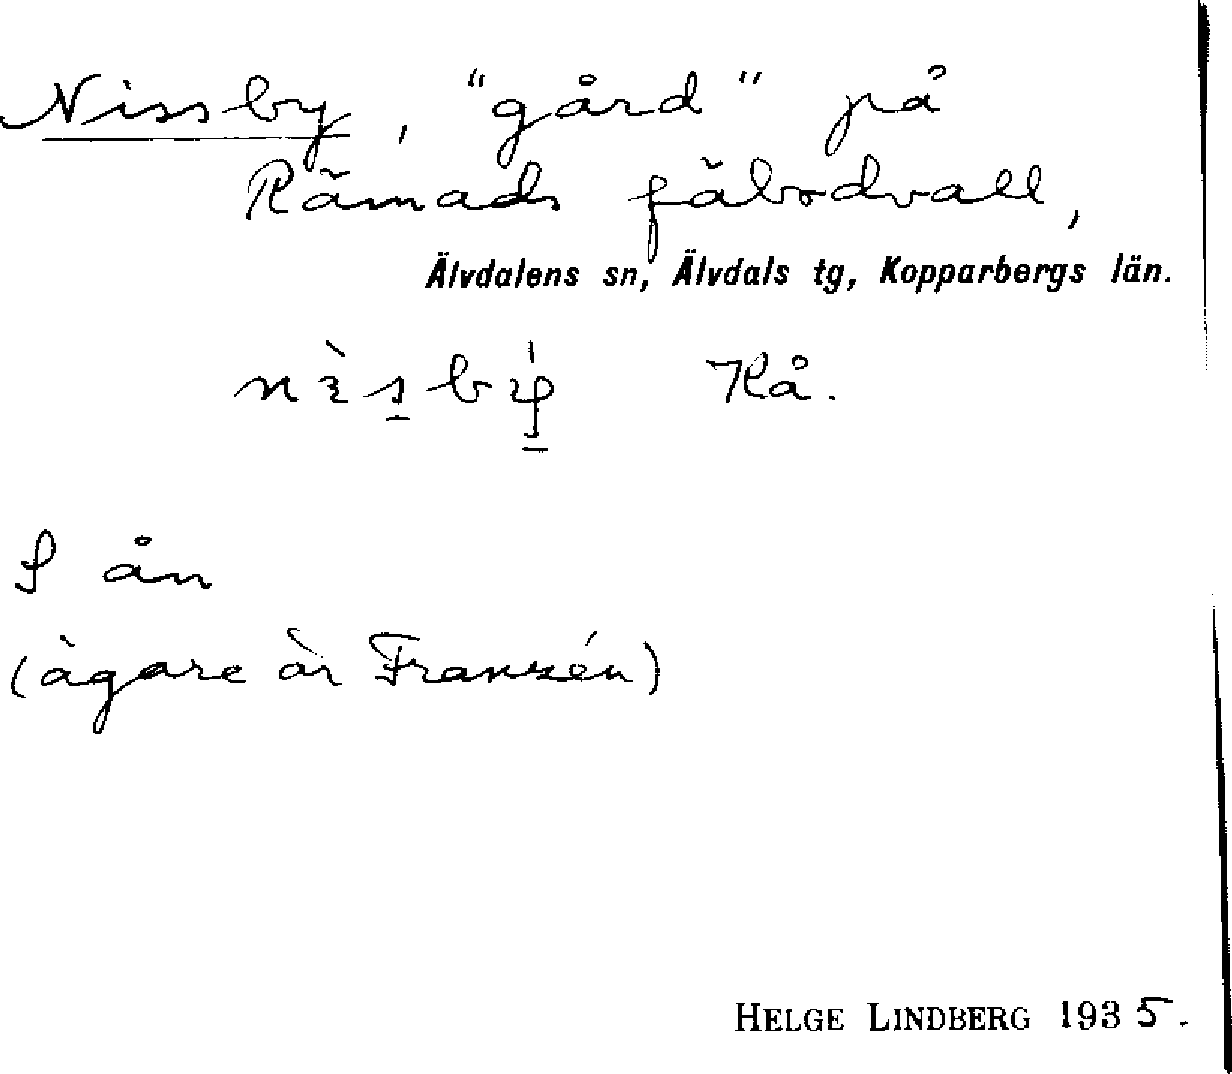 Nissby, "gård" på
Rämads fäbodvall,
Älvdalens sn, Älvdals tg, Kopparbergs län.
Rå.
S ån
(ägare är Franzén)
HELGE LINDBERG 1935.